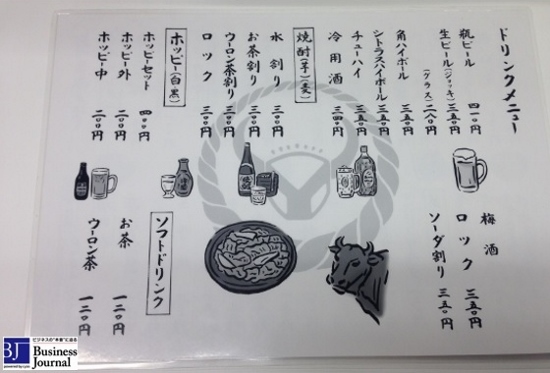 ドリンクメニュー
瓶ビール 四一〇円
生ビール(ジョッキ) 三五〇円
(グラス) 二八〇円
角ハイボール 三五〇円
シトラスハイボール 三五〇円
チューハイ 三五〇円
冷用酒 三四〇円
焼酎(芋・麦)
水割り 三〇〇円
お茶割り 三〇〇円
ウーロン茶割り 三〇〇円
ロック 三〇〇円
ホッピー(白・黒)
ホッピーセット 四〇〇円
ホッピー外 二〇〇円
ホッピー中 二〇〇円
梅酒
ロック 三五〇円
ソーダ割り 三五〇円
ソフトドリンク
お茶 一二〇円
ウーロン茶 一二〇円
BJ
ビジネスの"本音"に迫る
Business
Journal